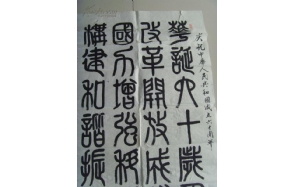 庆祝中华人民共和国成立六十周年
華誕六十歲
改革開放成
國力增強移
構建和諧振